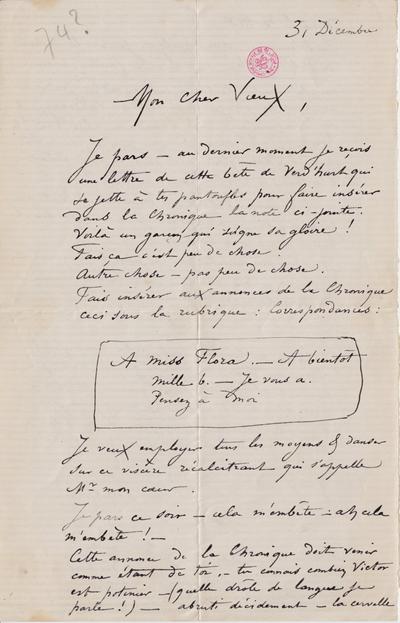 74?
31 Décembre
Mon cher Vieux,
Je pars – au dernier moment je reçois
une lettre de cette bête de Verd'hurt qui
se jette à tes pantoufles pour faire insérer
dans la Chronique la note ci-jointe.
Voilà un garçon qui signe sa gloire !
Fais ça c'est peu de chose.
Autre chose – pas peu de chose.
Fais insérer aux annonces de la Chronique
ceci sous la rubrique : Correspondances :
A miss Flora. – A bientôt
Mille b. – Je vous a.
Pensez à moi
Je veux employer tous les moyens & danser
sur ce viscère récalcitrant qui s'appelle
Mr mon cœur.
Je pars ce soir – cela m'embête – ah cela
m'embête ! –
Cette annonce de la Chronique doit venir
comme étant de toi, – tu connais combien Victor
est potinier – (quelle drôle de langue je
parle !) – abruti décidément – la cervelle